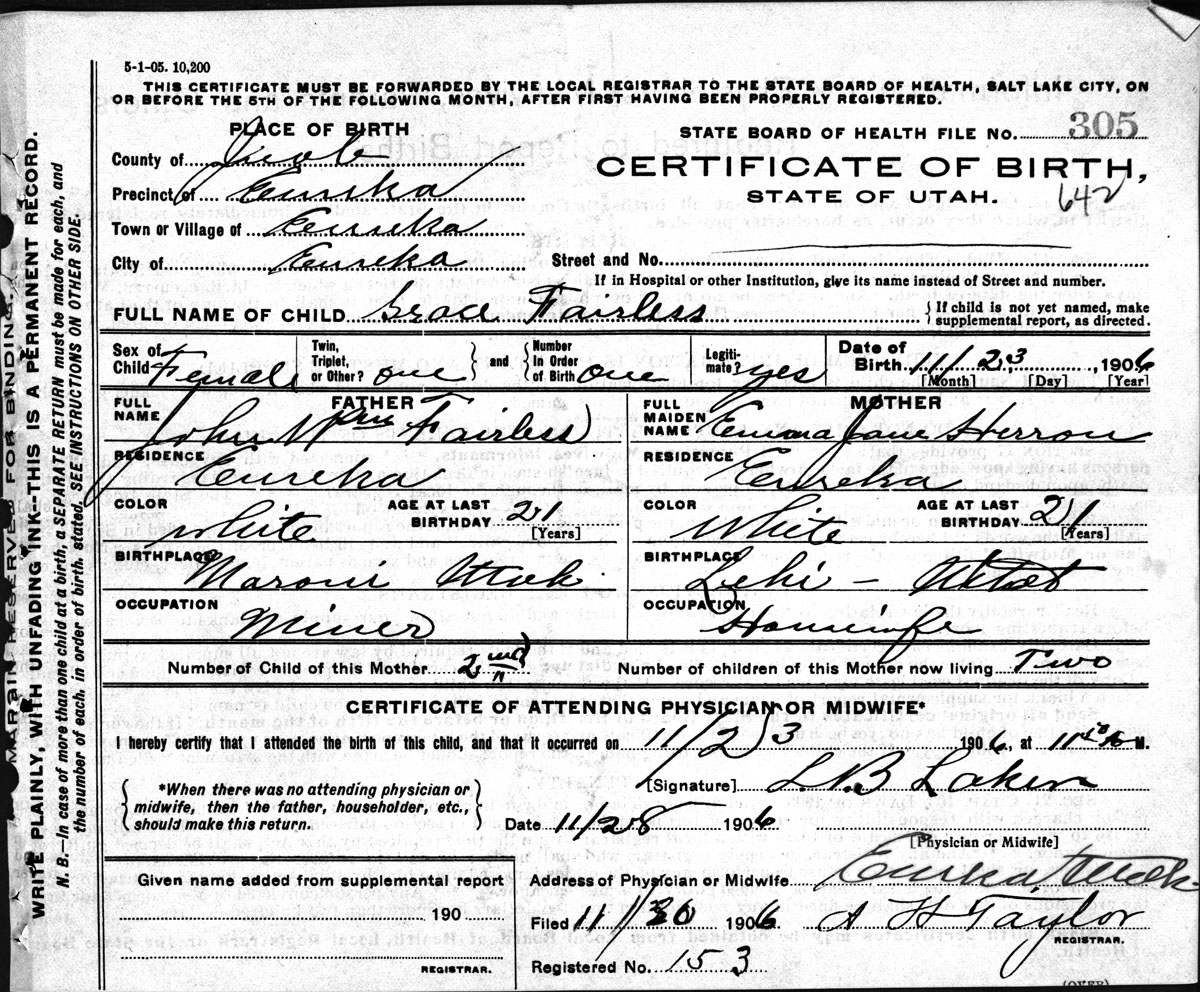 5-1-05. 10,200
THIS CERTIFICATE MUST BE FORWARDED BY THE LOCAL REGISTRAR TO THE STATE BOARD OF HEALTH, SALT LAKE CITY, ON
OR BEFORE THE 5TH OF THE FOLLOWING MONTH, AFTER FIRST HAVING BEEN PROPERLY REGISTERED.
PLACE OF BIRTH
STATE BOARD OF HEALTH FILE No. 305
County of Juab
CERTIFICATE OF BIRTH,
Precinct of Eureka
STATE OF UTAH. 642
Town or Village of Eureka
City of Eureka Street and No.
If in Hospital or other Institution, give its name instead of Street and number.
FULL NAME OF CHILD Grace Fairless { If child is not yet named, make supplemental report, as directed.
Sex of Child Female Twin, Triplet, or Other? one } and { Number In Order of Birth one Legiti-mate? yes Date of Birth 11/23, 1906
[Month] [Day] [Year]
FATHER MOTHER
FULL NAME John Wm Fairless FULL MAIDEN NAME Emma Jane Herron
RESIDENCE Eureka RESIDENCE Eureka
COLOR White AGE AT LAST BIRTHDAY 21 [Years] COLOR White AGE AT LAST BIRTHDAY 21 [Years]
BIRTHPLACE Maroni Utah. BIRTHPLACE Lehi - Utah
OCCUPATION Miner OCCUPATION Housewife
Number of Child of this Mother 2nd Number of children of this Mother now living Two
CERTIFICATE OF ATTENDING PHYSICIAN OR MIDWIFE*
I hereby certify that I attended the birth of this child, and that it occurred on 11/23 1906, at 11 M.
*When there was no attending physician or
midwife, then the father, householder, etc.,
should make this return.
[Signature] L.B. Laker
Date 11/28 1906
[Physician or Midwife]
Given name added from supplemental report
190
REGISTRAR.
Address of Physician or Midwife Eureka, Utah
Filed 11/30 1906 A H Taylor
REGISTRAR.
Registered No. 153
(OVER)
MARGIN RESERVED FOR BINDING.
WRITE PLAINLY, WITH UNFADING INK--THIS IS A PERMANENT RECORD.
N. B.—In case of more than one child at a birth, a SEPARATE RETURN must be made for each, and
the number of each, in order of birth, stated. SEE INSTRUCTIONS ON OTHER SIDE.